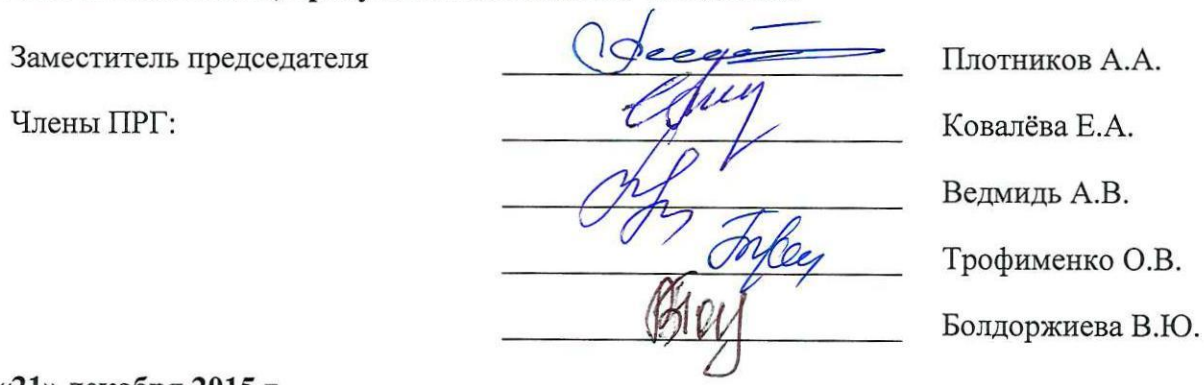 Заместитель председателя Плотников А.А.
Члены ПРГ: Ковалёва Е.А.
Ведмидь А.В.
Трофименко О.В.
Болдоржиева В.Ю.
«21» декабря 2015 г.